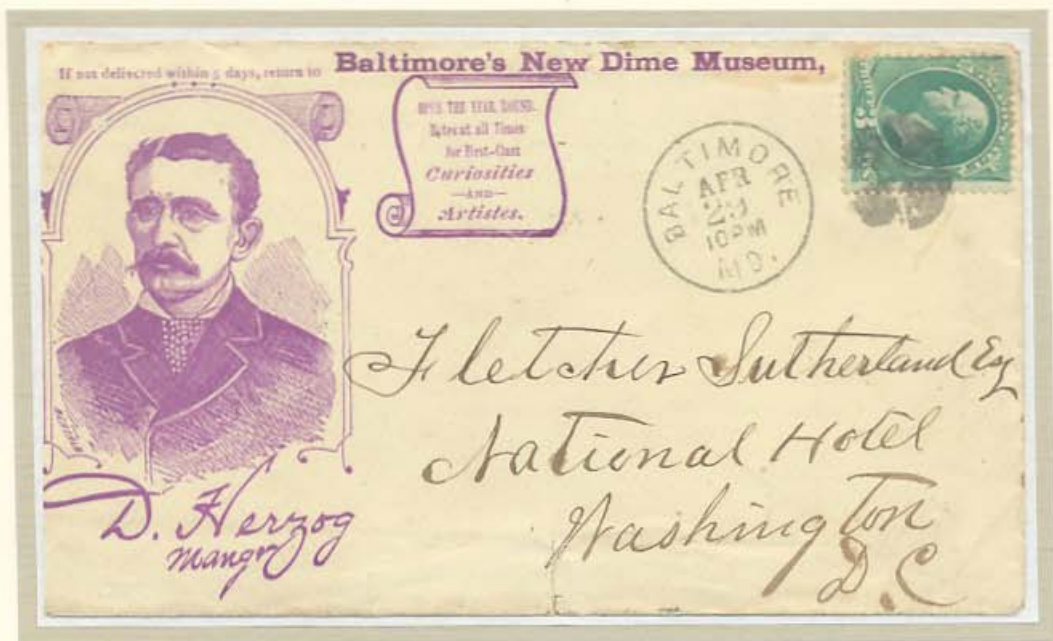 If not delivered within 5 days, return to Baltimore's New Dime Museum,
OPEN THE YEAR ROUND.
Dates at all Times
for First-Class
Curiosities
—AND—
Artistes.
BALTIMORE
APR
29
10PM
MD.
Fletcher Sutherland Esq
National Hotel
Washington
D.C
D. Herzog
Manger